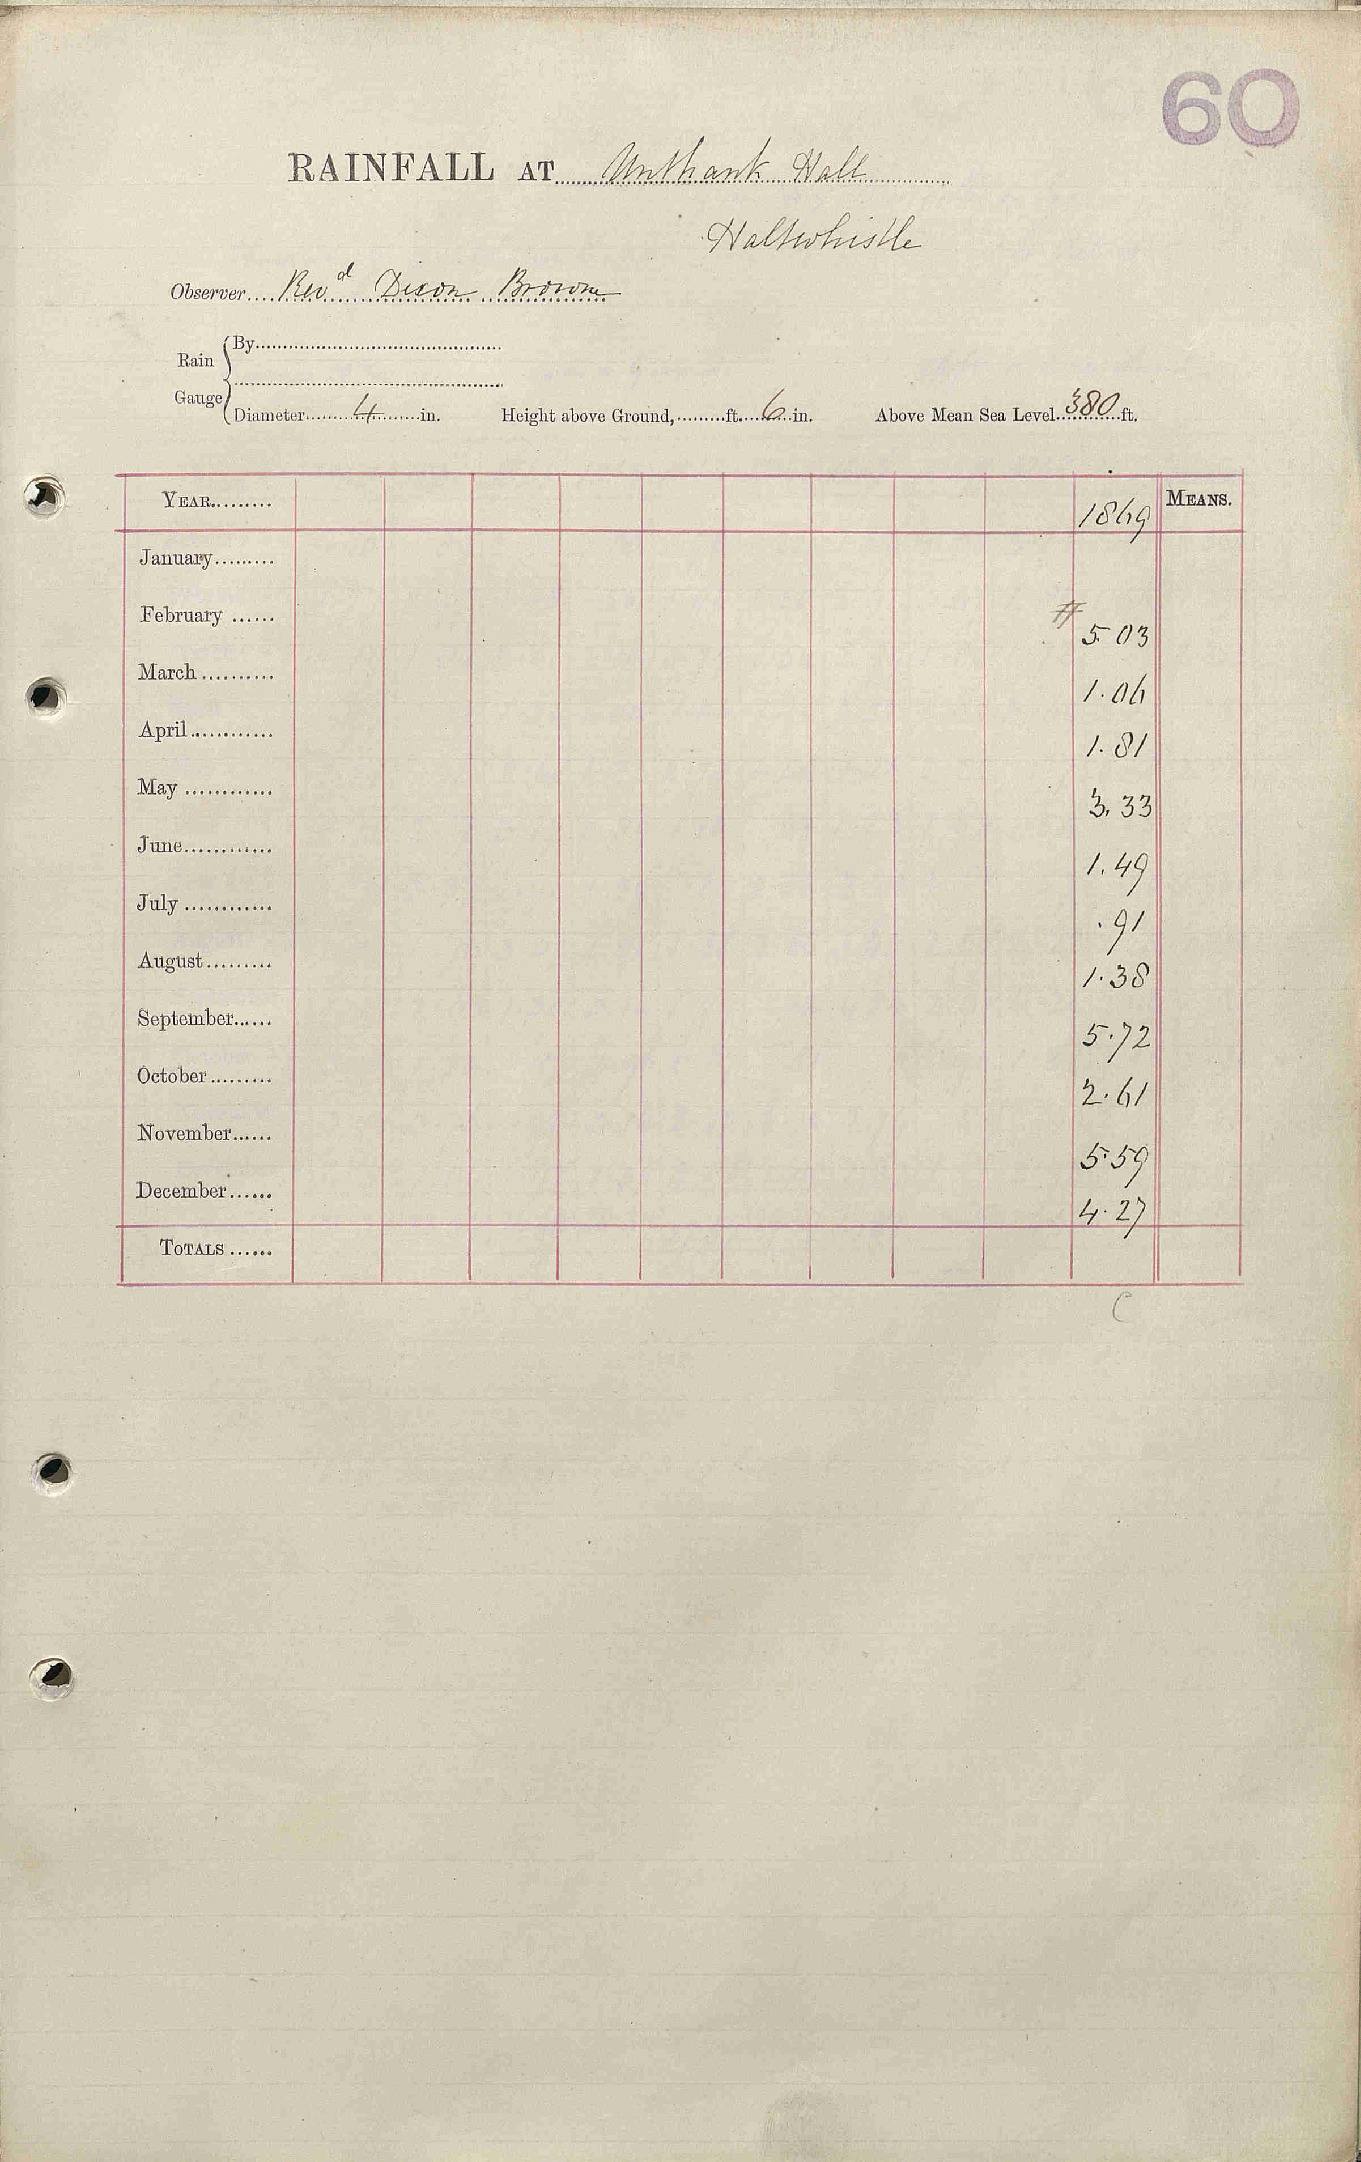 60
RAINFALL AT Unthank Hall
Haltwhistle
Observer Revd Dixon Browne
Rain Gauge
By
Diameter 4 in. Height above Ground, ft. 6 in. Above Mean Sea Level 380 ft.
YEAR 1869 MEANS.
January
February # 5.03
March 1.06
April 1.81
May 3.33
June 1.49
July .91
August 1.38
September 5.72
October 2.61
November 5.59
December 4.27
TOTALS
C